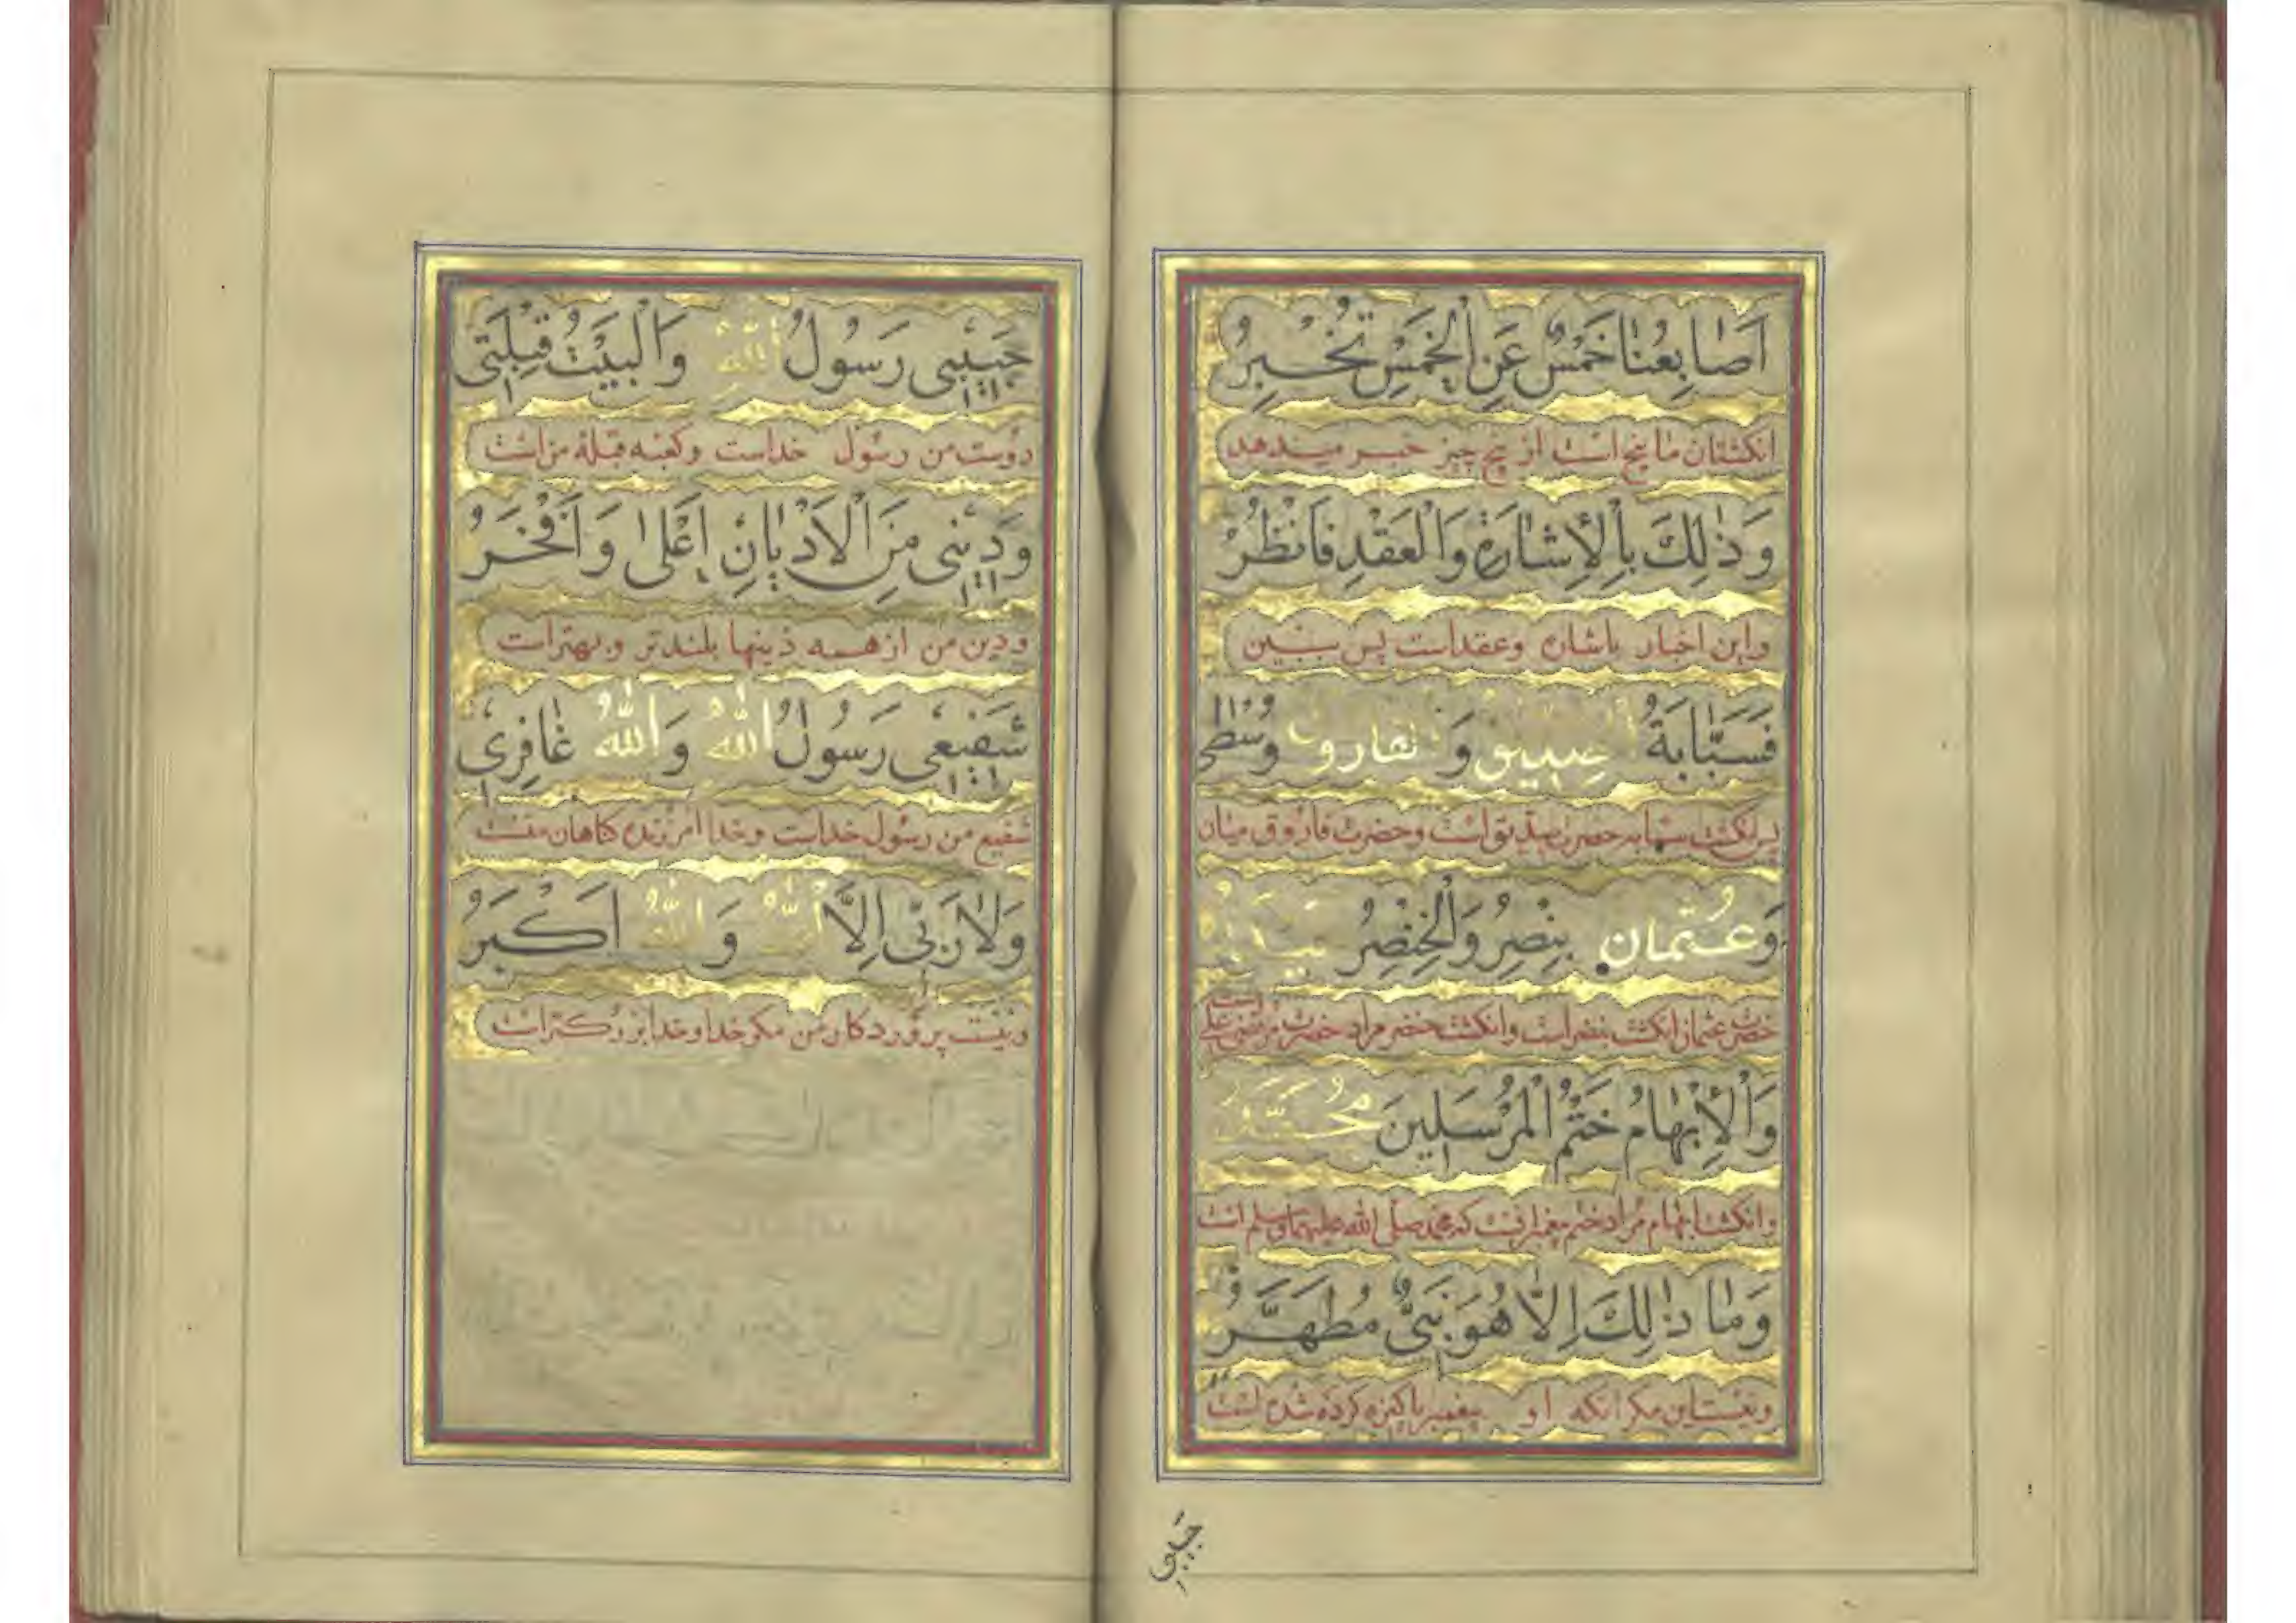 اَصَابِعُنَا خَمْسٌ عَنِ الْخَمْسِ تُخْبِرُ
انکشتان ما پنج است از پنج چیز خبر میدهد
وَذٰلِكَ بِالْاِشَارَةِ وَالْعَقْدِ فَانْظُرُ
واین اخبار باشاره وعقداست پس ببین
فَسَبَّابَةُ وَ وُسْطٰی
پس انکشت سبابه حضرت صدیق است وحضرت فاروق میان
وَعُثْمان بِنْصِرُ وَالْخِنْصِرُ
حضرت عثمان انکشت بنصراست وانکشت خنصر مراد حضرت مرتضی علی است
وَالْاِبْهَامُ خَتْمُ الْمُرْسَلِينَ مُحَمَّدٌ
وانکشت ابهام مراد ختم که محمد صلی الله علیه وسلم است
وَمَا ذٰلِكَ اِلَّا هُوَ نَبِیٌّ مُطَهَّرٌ
ونیست این مکر انکه او پیغمبر پاکیزه کرده شده است
حبیبی
حَبِيْبِی رَسُولُ اللهِ وَالْبَيْتُ قِبْلَتِی
دوست من رسول خداست وکعبه قبلهٔ من است
وَدِيْنِی مِنَ الْاَدْيَانِ اَعْلٰی وَاَفْخَرُ
ودین من از همه دینها بلندتر وبهتراست
شَفِيْعِی رَسُولُ اللهِ وَاللهُ غَافِرِی
شفیع من رسول خداست وخدا امرزنده کناهان منست
وَلَا رَبِّی اِلَّا اللهُ وَاللهُ اَكْبَرُ
ونیست پروردکار من مکر خدا وخدا بزرکتراست